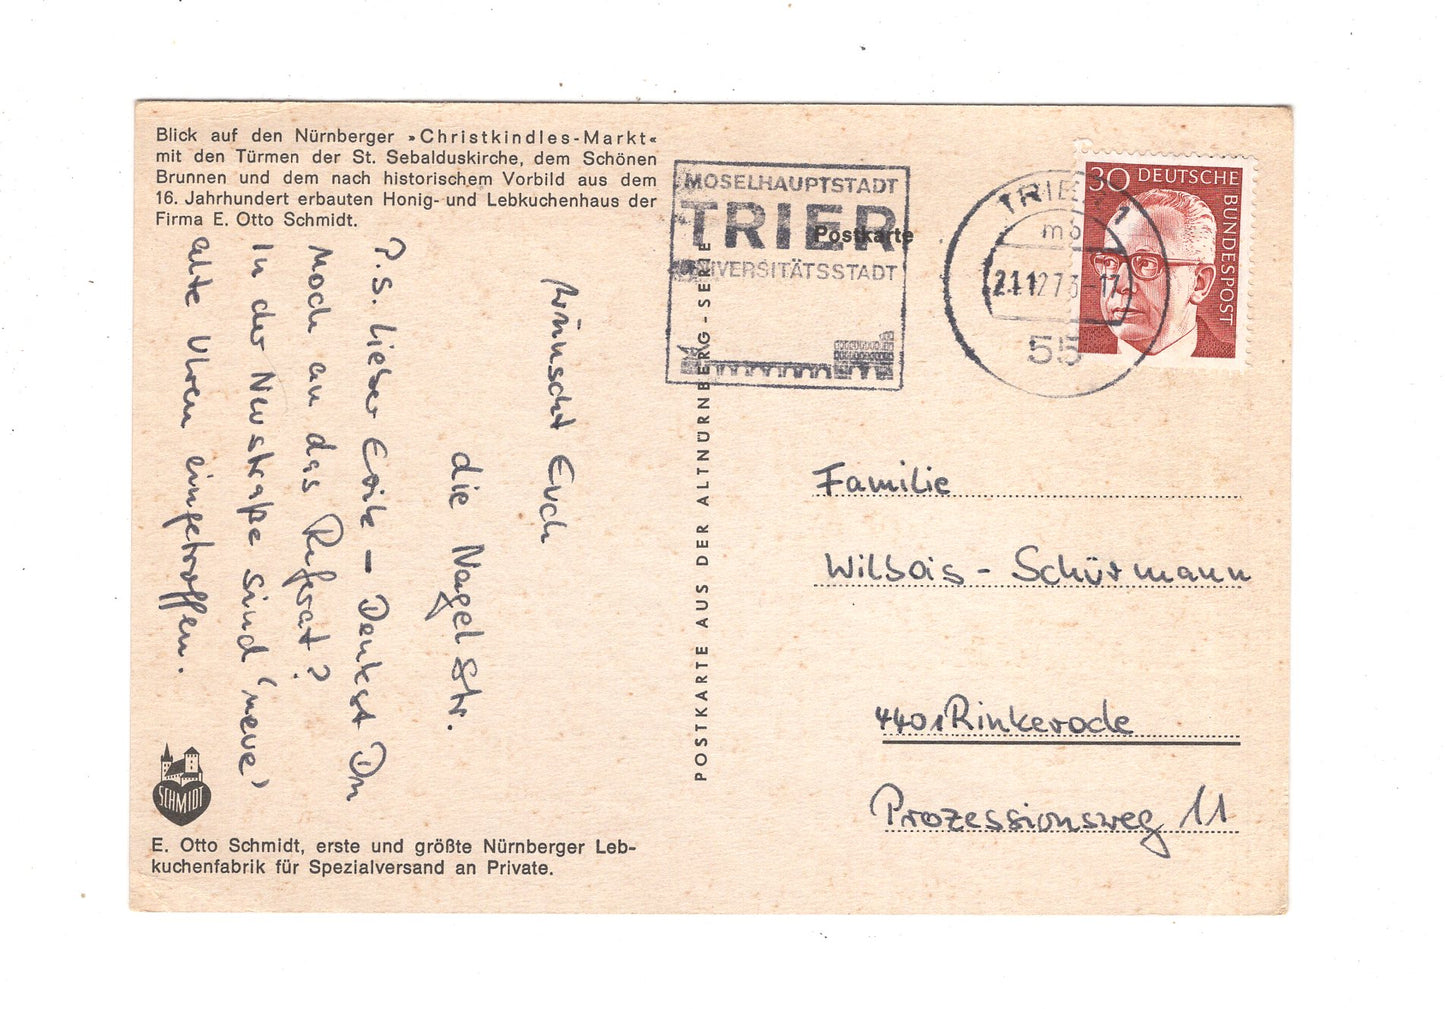 Blick auf den Nürnberger »Christkindles-Markt«
mit den Türmen der St. Sebalduskirche, dem Schönen
Brunnen und dem nach historischem Vorbild aus dem
16. Jahrhundert erbauten Honig- und Lebkuchenhaus der
Firma E. Otto Schmidt.
wünscht Euch
die Nagelstr.
P.s. lieber Erik – Denkst Du
noch an das Referat?
In der Neustraße sind 'neue'
alte Uhren eingetroffen.
SCHMIDT
E. Otto Schmidt, erste und größte Nürnberger Leb-
kuchenfabrik für Spezialversand an Private.
POSTKARTE AUS DER ALTNÜRNBERG-SERIE
MOSELHAUPTSTADT
TRIER
UNIVERSITÄTSSTADT
Postkarte
TRIER 1
mb
21.12.73-17
55
30 DEUTSCHE
BUNDESPOST
Familie
Wilbois - Schürmann
4401 Rinkerode
Prozessionsweg 11